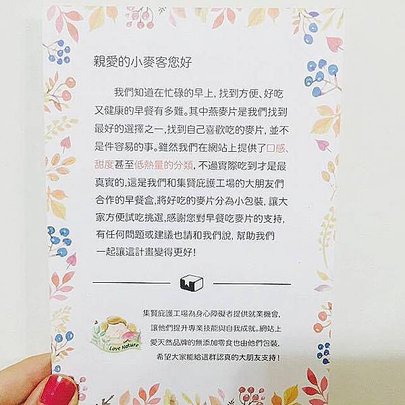 親愛的小麥客您好
我們知道在忙碌的早上，找到方便、好吃
又健康的早餐有多難。其中燕麥片是我們找到
最好的選擇之一，找到自己喜歡吃的麥片，並不
是件容易的事。雖然我們在網站上提供了口感、
甜度甚至低熱量的分類，不過實際吃到才是最
真實的，這是我們和集賢庇護工場的大朋友們
合作的早餐盒，將好吃的麥片分為小包裝，讓大
家方便試吃挑選，感謝您對早餐吃麥片的支持，
有任何問題或建議也請和我們說，幫助我們
一起讓這計畫變得更好！
集賢庇護工場為身心障礙者提供就業機會，
讓他們提升專業技能與自我成就。網站上
愛天然品牌的無添加零食也由他們包裝，
希望大家能給這群認真的大朋友支持！
Love Nature